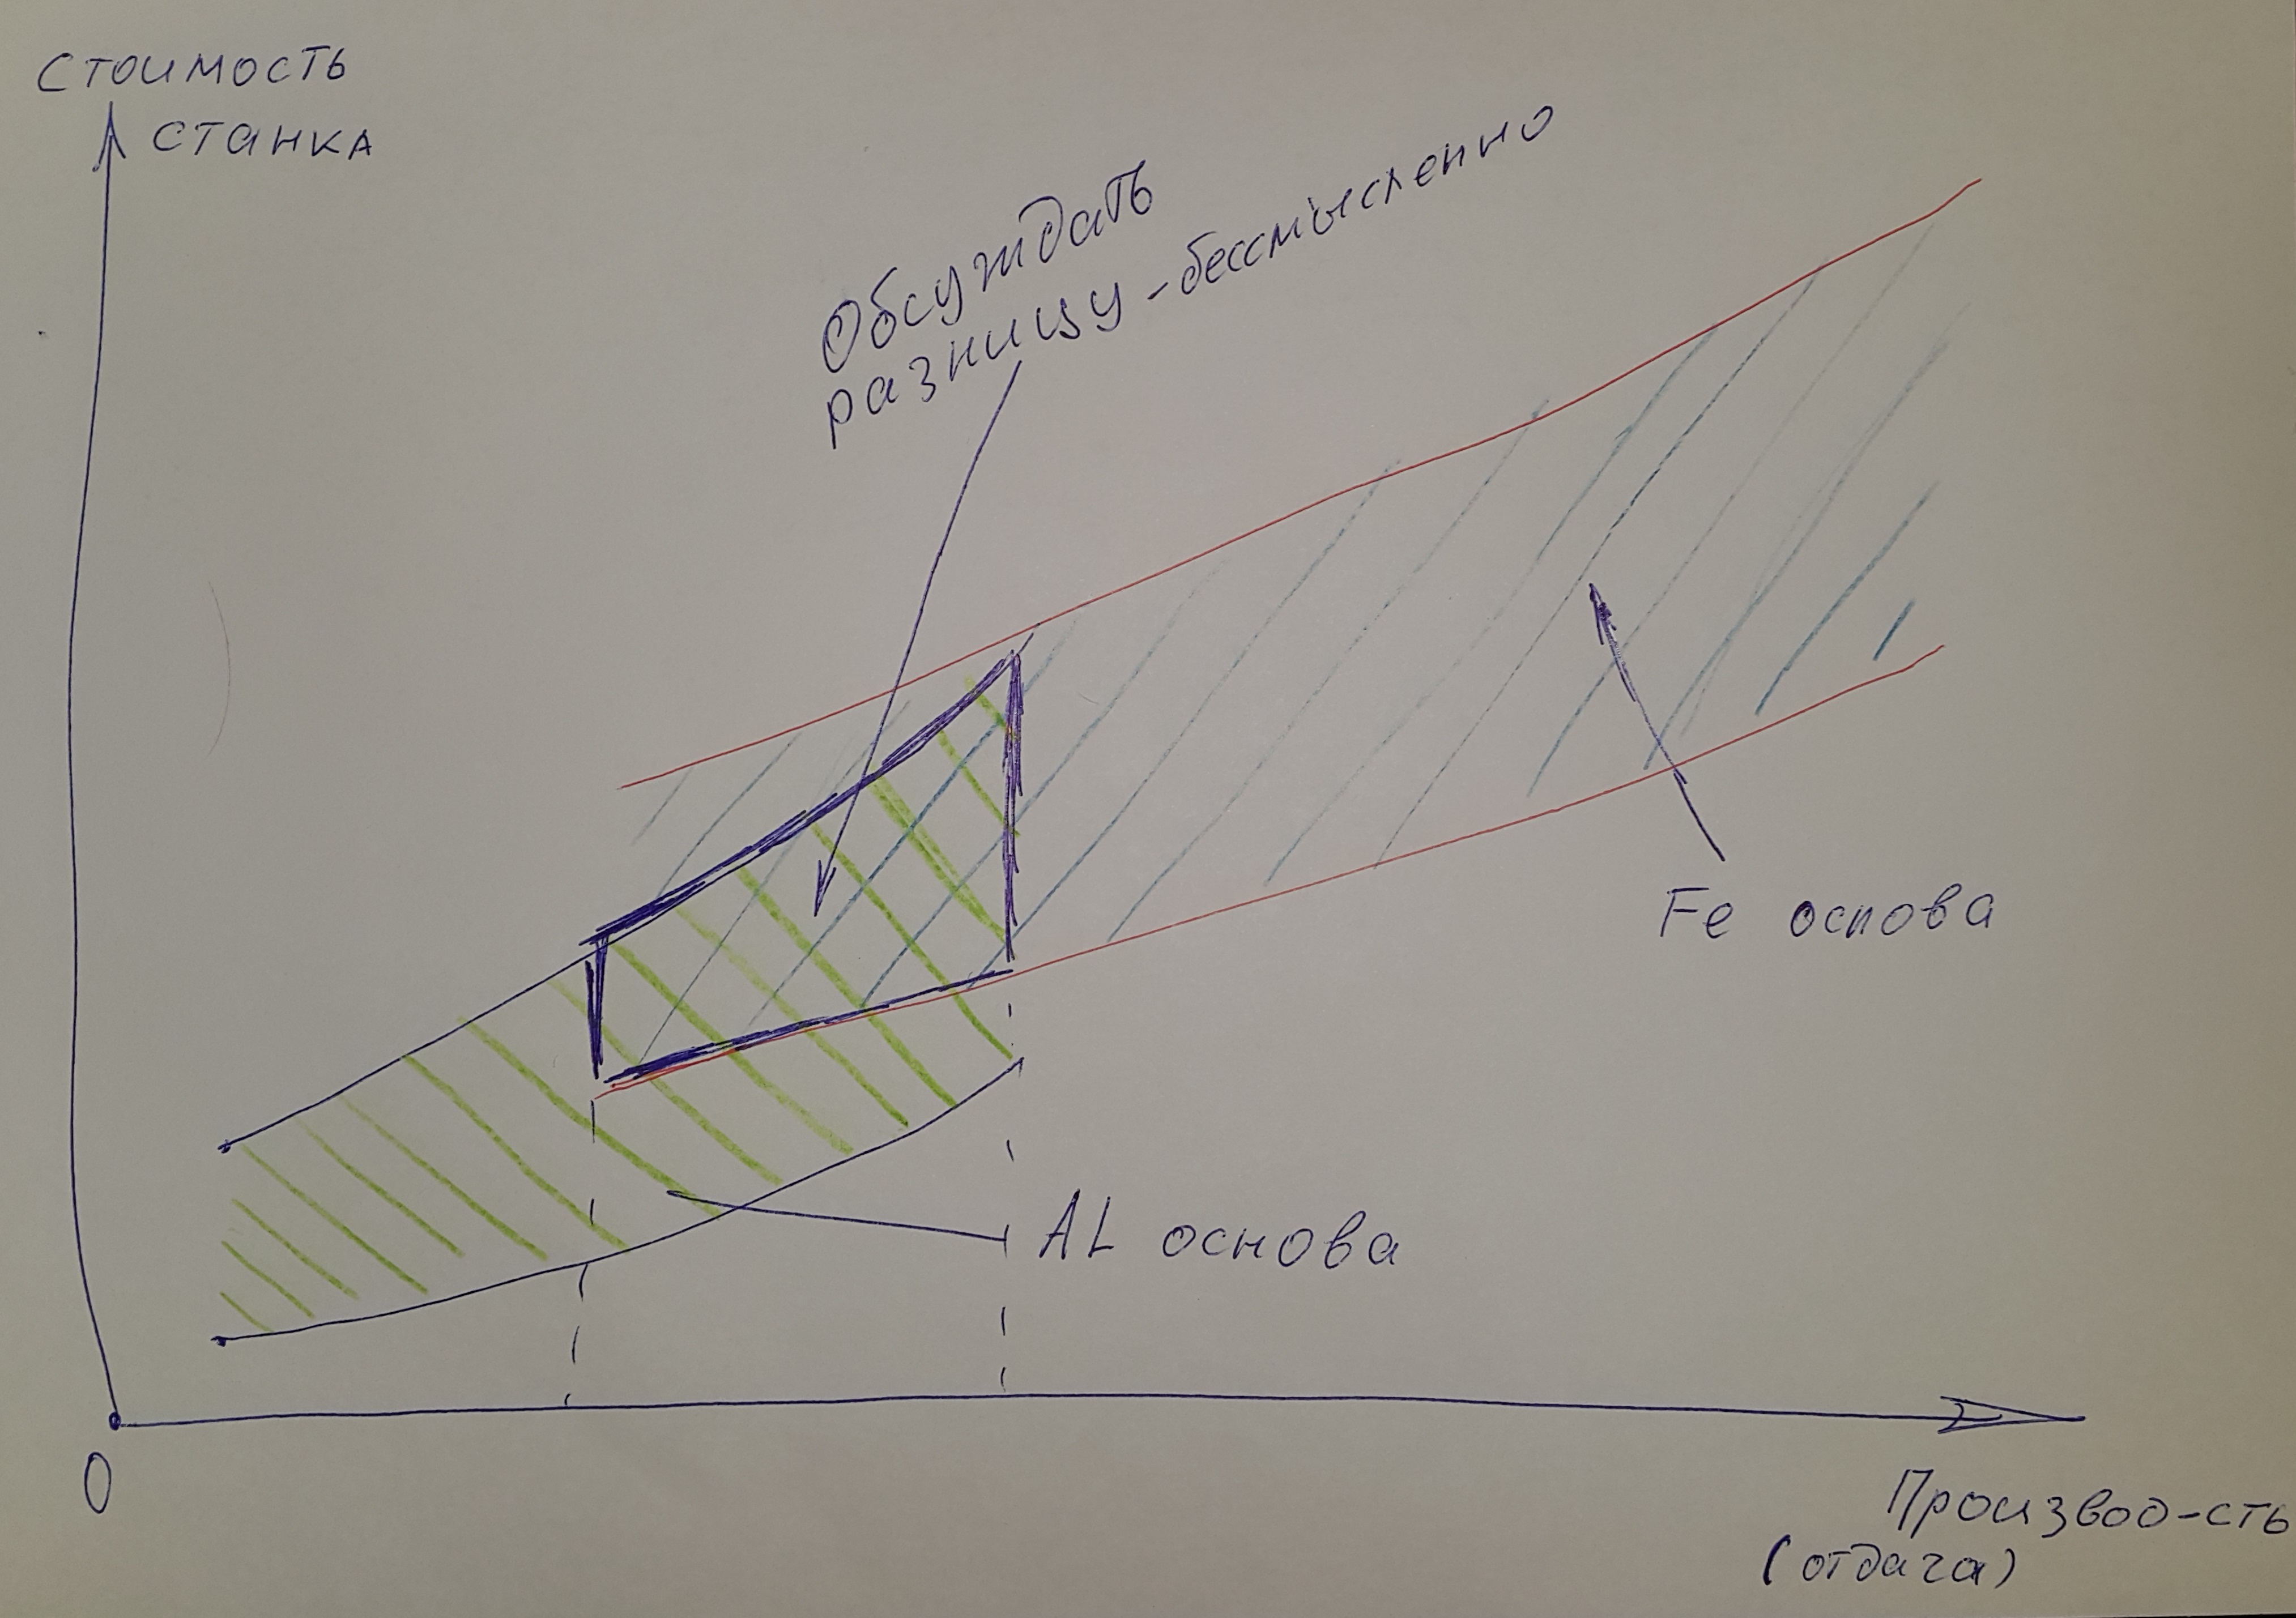 Стоимость
станка
Обсуждать
разницу - бессмысленно
Fe основа
AL основа
0
Произвоо-сть
(отдача)